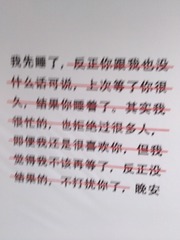 我先睡了，反正你跟我也没
什么话可说，上次等了你很
久，结果你睡着了。其实我
很忙的，也拒绝过很多人，
即便我还是很喜欢你，但我
觉得我不该再等了，反正没
结果的，不打扰你了，晚安